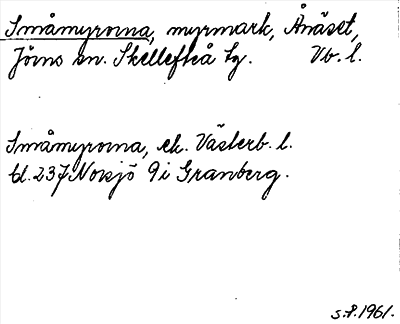 Småmyrorna, myrmark, Ånäset,
Jörns sn. Skellefteå tg. Vb. l.
Småmyrorna, ek. Västerb. l.
bl. 237 Norsjö 9 i Granberg.
s.P.1961.